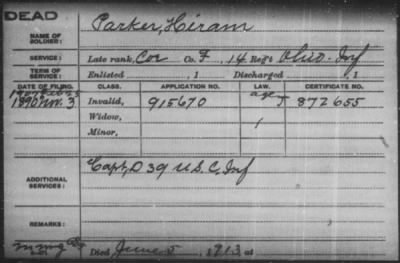 DEAD
Parker, Hiram
NAME OF SOLDIER:
SERVICE: Late rank, Cor Co. F, 14 Reg't Ohio Inf
TERM OF SERVICE: Enlisted , 1 Discharged , 1
DATE OF FILING. CLASS. APPLICATION NO. LAW. CERTIFICATE NO.
age
1890 Nov. 3 Invalid, 915670 872655
Widow,
Minor,
ADDITIONAL SERVICES: Capt, D 39 U.S.C. Inf
REMARKS:
Died June 5, 1913, at